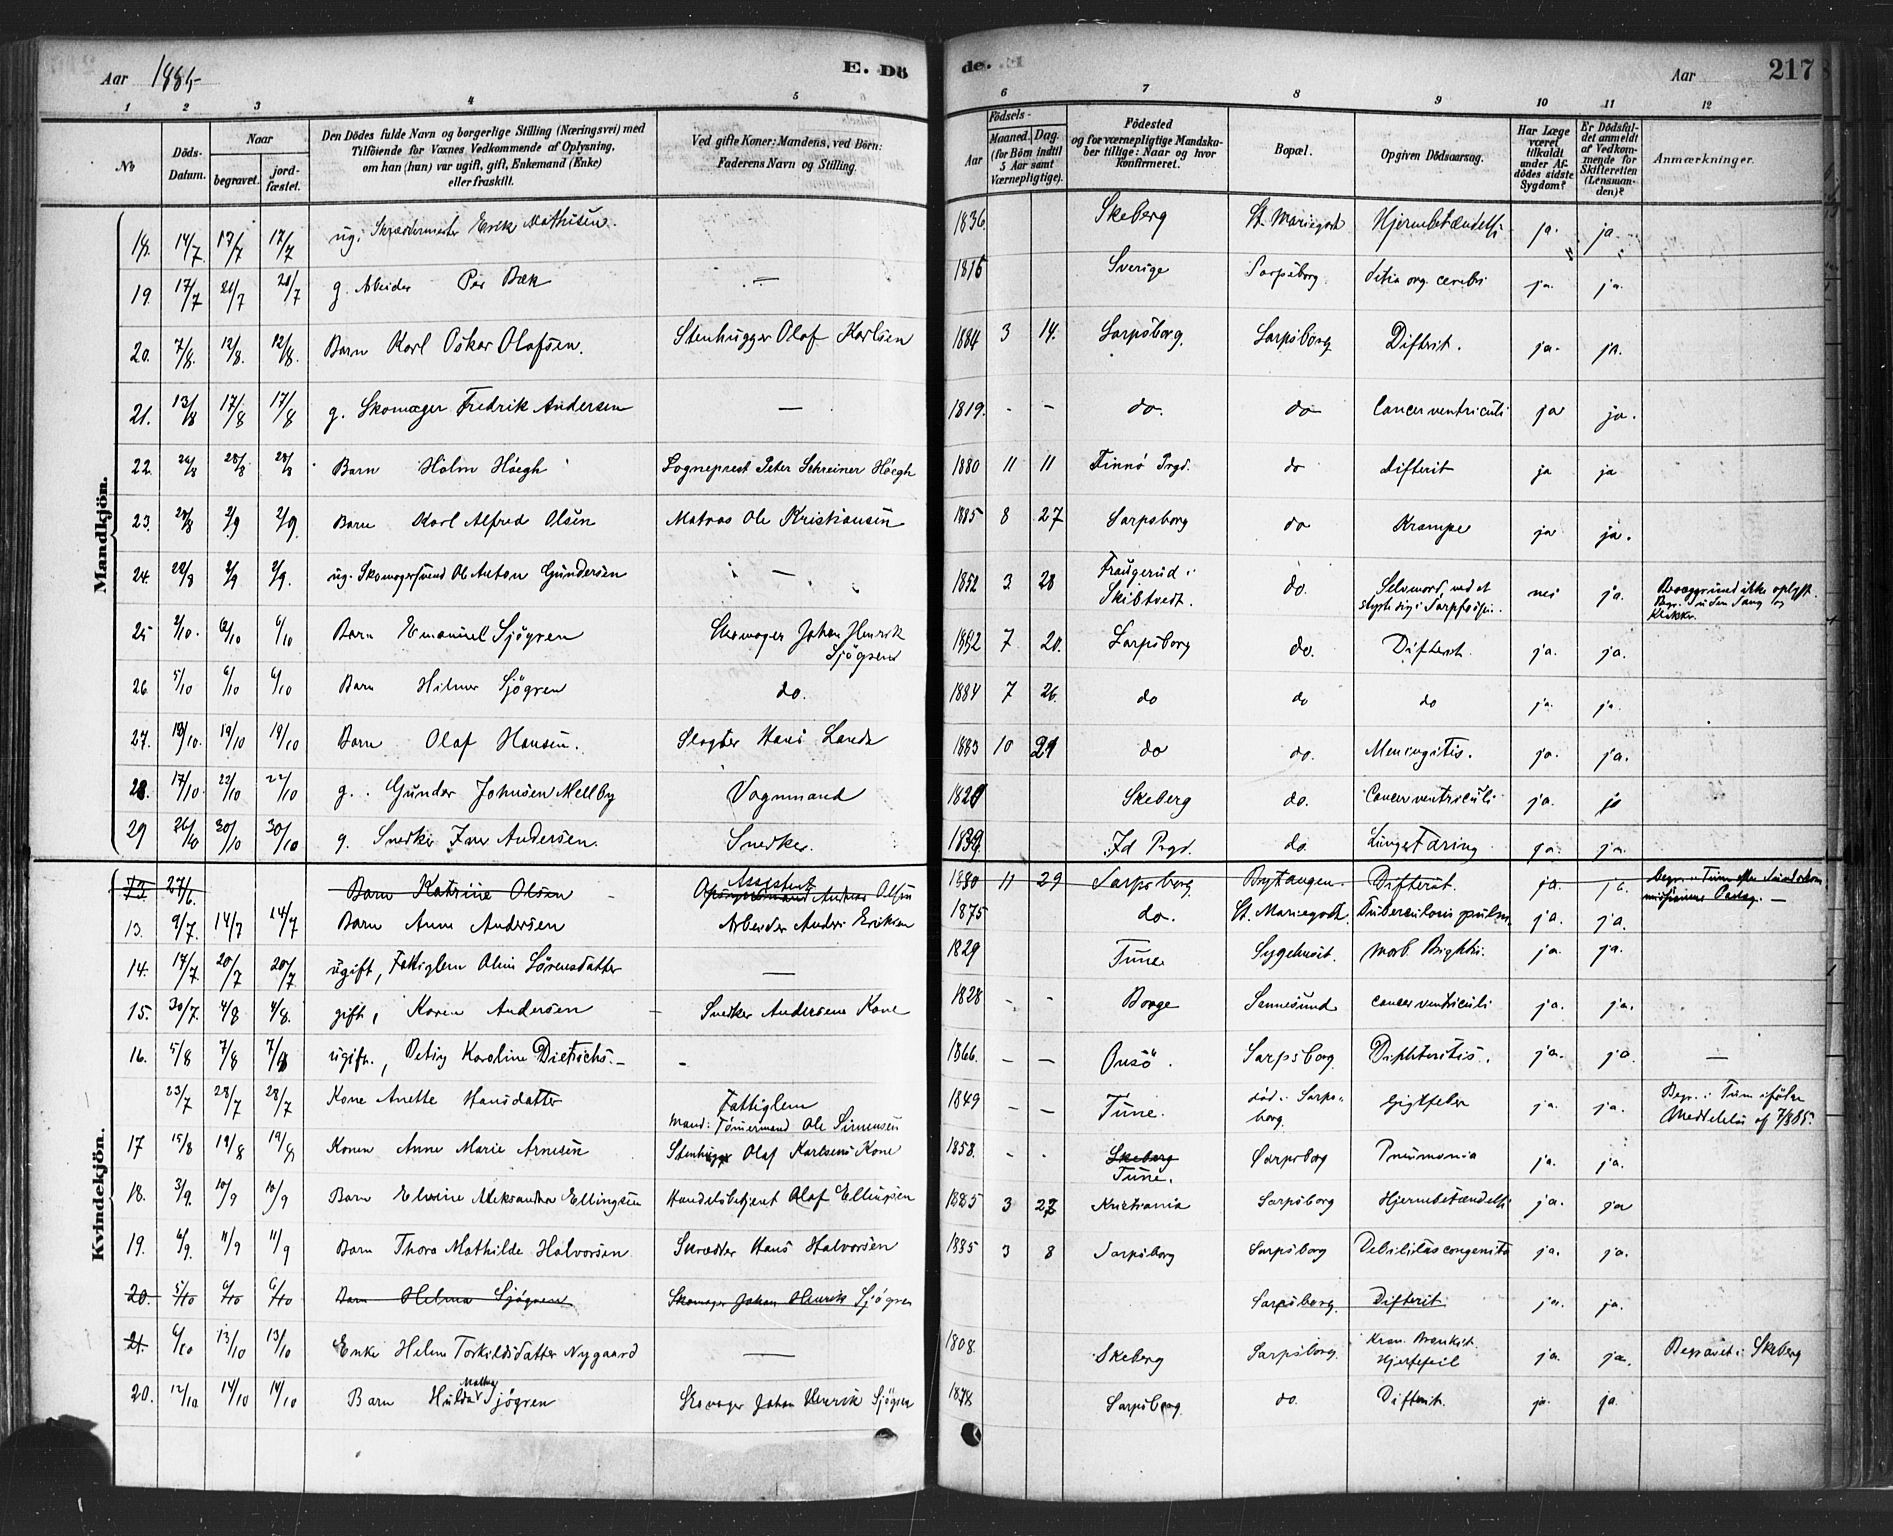 Aar 1885
E. Dö
de.
Aar
217
1 2 3 4 5 6 7 8 9 10 11 12
No
Döds-Datum.
Naar
begravet.
jord-fæstet.
Den Dödes fulde Navn og borgerlige Stilling (Næringsvei) med
Tilföiende for Voxnes Vedkommende af Oplysning,
om han (hun) var ugift, gift, Enkemand (Enke)
eller fraskilt.
Ved gifte Koner: Mandens, ved Börn:
Faderens Navn og Stilling.
Födsels-
Aar
Maaned. Dag.
(for Börn indtil
5 Aar samt
Værnepligtige).
Födested
og for værnepligtige Mandska-
ber tillige: Naar og hvor
konfirmeret.
Bopæl.
Opgiven Dödsaarsag.
Har Læge
været
tilkaldt
under Af-
dödes sidste
Sygdom?
Er Dödsfal-
det anmeldt
af Vedkom-
mende for
Skifteretten
(Lensman-
den)?
Anmærkninger.
Mandkjön.
18. 14/7 17/7 17/7 ug. Skræddermester Erik Mathisen. 1836 Skeberg St. Mariegade Hjernebetændelse ja. ja.
19. 17/7 21/7 21/7 g. Arbeider Per Bæk — 1816 Sverige Sarpsborg. Vitia org. cerebri ja. ja.
20. 7/8. 12/8. 12/8. Barn Karl Oskar Olafsen. Stenhugger Olaf Karlsen 1884 3 14. Sarpsborg. Sarpsborg Difterit. ja. ja.
21. 13/8 17/8 17/8 g. Skomager Fredrik Andersen — 1819. - - do. do Cancer ventriculi ja ja.
22. 26/8 28/8 28/8 Barn Holm Höegh Sogneprest Peter Schreiner Höegh 1880 11 11 Finnö Prgd. do Difterit ja ja
23. 28/8 2/9 2/9 Barn Karl Alfred Olsen Matros Ole Kristiansen 1885 8 27 Sarpsborg do Krampe ja ja.
24. 22/8 2/9 2/9. ug. Skomagersvend Ole Anton Gundersen — 1852 3 28 Fraugerud i Skibtvedt. do. Selvmord, ved at styrte sig i Sarpfossen. nei ja. Bevæggrund ikke oplyst. Begr. uden Sang og Klokker.
25 2/10. 6/10 6/10 Barn Emanuel Sjögren Skomager Johan Henrik Sjögren 1882 7 20. Sarpsborg do. Difterit. ja. ja.
26 5/10 6/10 6/10 Barn Hilmer Sjögren do. 1884 7 26. do do do ja. ja.
27. 18/10. 19/10 19/10 Barn Olaf Hansen. Slagter Hans Lande 1883 10 21 do do. Meningitis. ja. ja.
28. 17/10. 22/10 22/10 g. Gunder Johnsen Mellby Vognmand 1820 Skeberg do. Cancer ventriculi ja. ja
29 26/10 30/10 30/10 g. Snedker Iver Andersen. Snedker. 1839 Id Prgd. do. Lungetæring ja. ja.
Kvindekjön.
13. 27/6. Barn Katrine Olsen Assistent Andreas Olsen 1880 11 29 Sarpsborg Brytaugen. Difterit. ja. ja.
13. 9/7. 14/7 14/7 Barn Anne Andersen Arbeider Anders Eriksen 1875 do. St. Mariegade. Tuberculosis pulm. ja. ja.
14. 17/7. 20/7 20/7 ugift, Fattiglem Oline Sörensdatter — 1829 Tune. Sygehuset. Morb. Brightii. ja. ja.
15. 30/7. 4/8 4/8. gift, Karen Andersen — Snedker Andersens Kone 1828 - - Borge Sannesund cancer ventriculi ja. ja.
16. 5/8 7/8 7/8 ugift., Betsy Karoline Dietrichs. — - 1866. — — Onsö. Sarpsborg. Diphteritis. ja. ja. —
23/7 28/7 28/7 Kone Anette Hansdatter Fattiglem Mand: Tömermand Ole Simensen 1849 — — Tune. död i Sarpsborg. Gigtfeber ja. ja. Begr. i Tune ifölge Meddelelse af 7/8 85.
17 15/8 19/8 19/8 Konen Anne Marie Arnesen Stenhugger Olaf Karlsens Kone 1858. - - Skeberg Tune. Sarpsborg Pneumonia ja. ja.
18. 3/9. 10/9 10/9 Barn Elvine Aleksandra Ellingsen Handelsbetjent Olaf Ellingsen 1885 3 27 Kristiania Sarpsborg Hjernebetændelse ja. ja
19. 6/9. 11/9 11/9 Barn Thora Mathilde Halvorsen Skrædder Hans Halvorsen 1885 3 8 Sarpsborg Sarpsborg Debilitas congenita ja. ja.
20. 5/10 6/10 6/10 Barn Helma Sjögren Skomager Johan Henrik Sjögren Sarpsborg. Difterit ja. ja.
21. 6/10 13/10 13/10 Enke Helene Torkildsdatter Nygaard — 1808. Skeberg Sarpsborg. Kron. Bronkit. Hjertefeil ja. ja. Begravet i Skeberg
20. 12/10 14/10 14/10 Barn Hulda Mathea Sjögren Skomager Johan Henrik Sjögren 1878 Sarpsborg. do. Difterit. ja. ja.